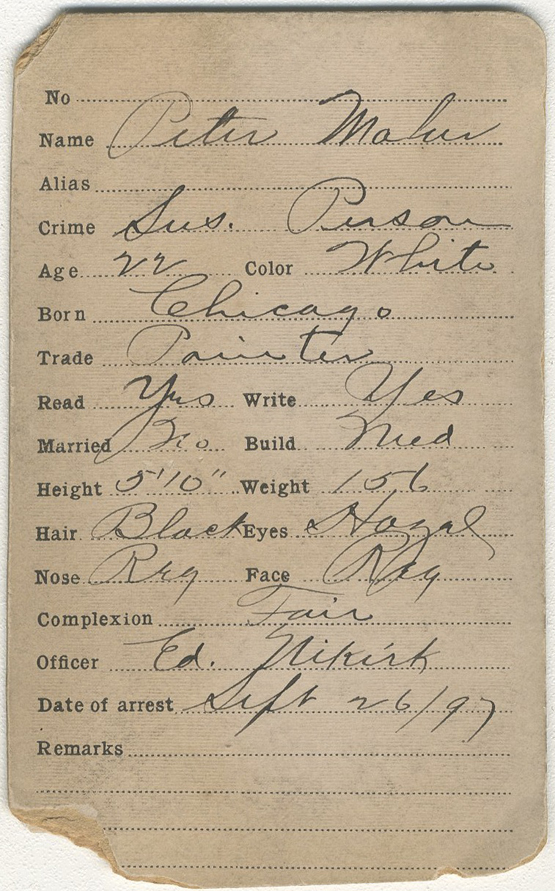 No
Name Peter Maher
Alias
Crime Sus. Person
Age 22 Color White
Born Chicago
Trade Painter
Read Yes Write Yes
Married No Build Med
Height 5'10" Weight 156
Hair Black Eyes Hazal
Nose Reg Face Reg
Complexion Fair
Officer Ed. Nikirk
Date of arrest Sept 26/97
Remarks